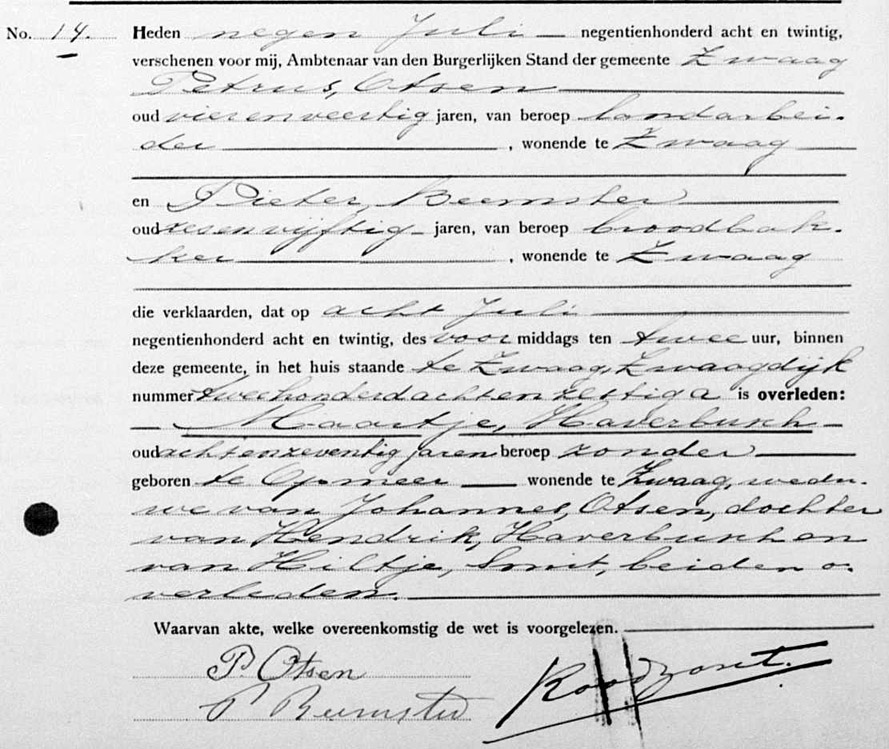 No. 14. Heden negen Juli negentienhonderd acht en twintig,
verschenen voor mij, Ambtenaar van den Burgerlijken Stand der gemeente Zwaag
Petrus, Otsen
oud vierenveertig jaren, van beroep landarbei-
der , wonende te Zwaag
en Pieter, Beemster
oud zesenvijftig jaren, van beroep broodbak-
ker , wonende te Zwaag
die verklaarden, dat op acht Juli
negentienhonderd acht en twintig, des voormiddags ten twee uur, binnen
deze gemeente, in het huis staande te Zwaag, Zwaagdijk
nummer tweehonderdachtenzestig a is overleden:
Maartje, Haverbusch
oud achtenzeventig jaren beroep zonder
geboren te Opmeer wonende te Zwaag, wedu-
we van Johannes, Otsen, dochter
van Hendrik, Haverbusch en
van Hiltje, Smit, beiden o-
verleden.
Waarvan akte, welke overeenkomstig de wet is voorgelezen.
P. Otsen
P Beemster
Roodzant.